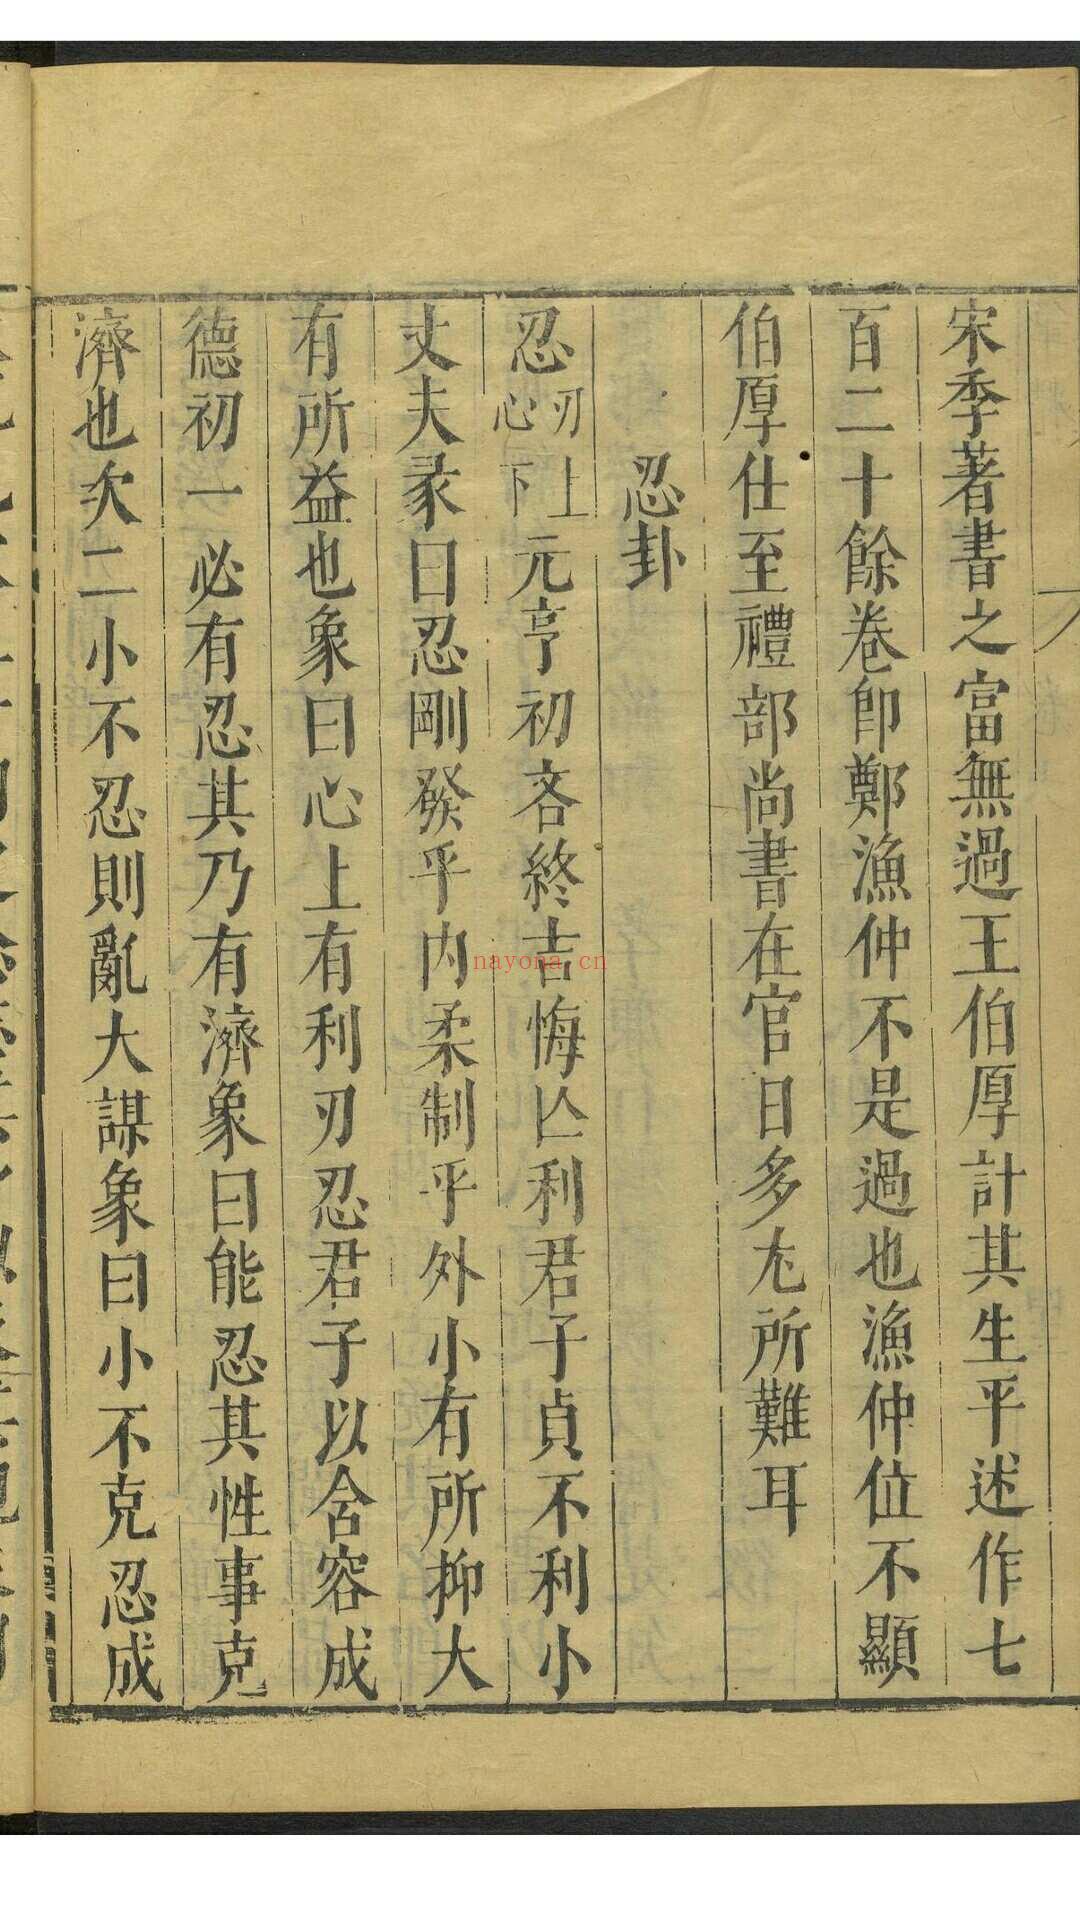 宋季著書之富無過王伯厚計其生平述作七
百二十餘卷卽鄭漁仲不是過也漁仲位不顯
伯厚仕至禮部尚書在官日多尤所難耳
忍卦
忍刃上心下元亨初吝終吉悔亾利君子貞不利小
丈夫彖曰忍剛發乎内柔制乎外小有所抑大
有所益也象曰心上有利刃忍君子以含容成
德初一必有忍其乃有濟象曰能忍其性事克
濟也次二小不忍則亂大謀象曰小不克忍成
nayona.cn